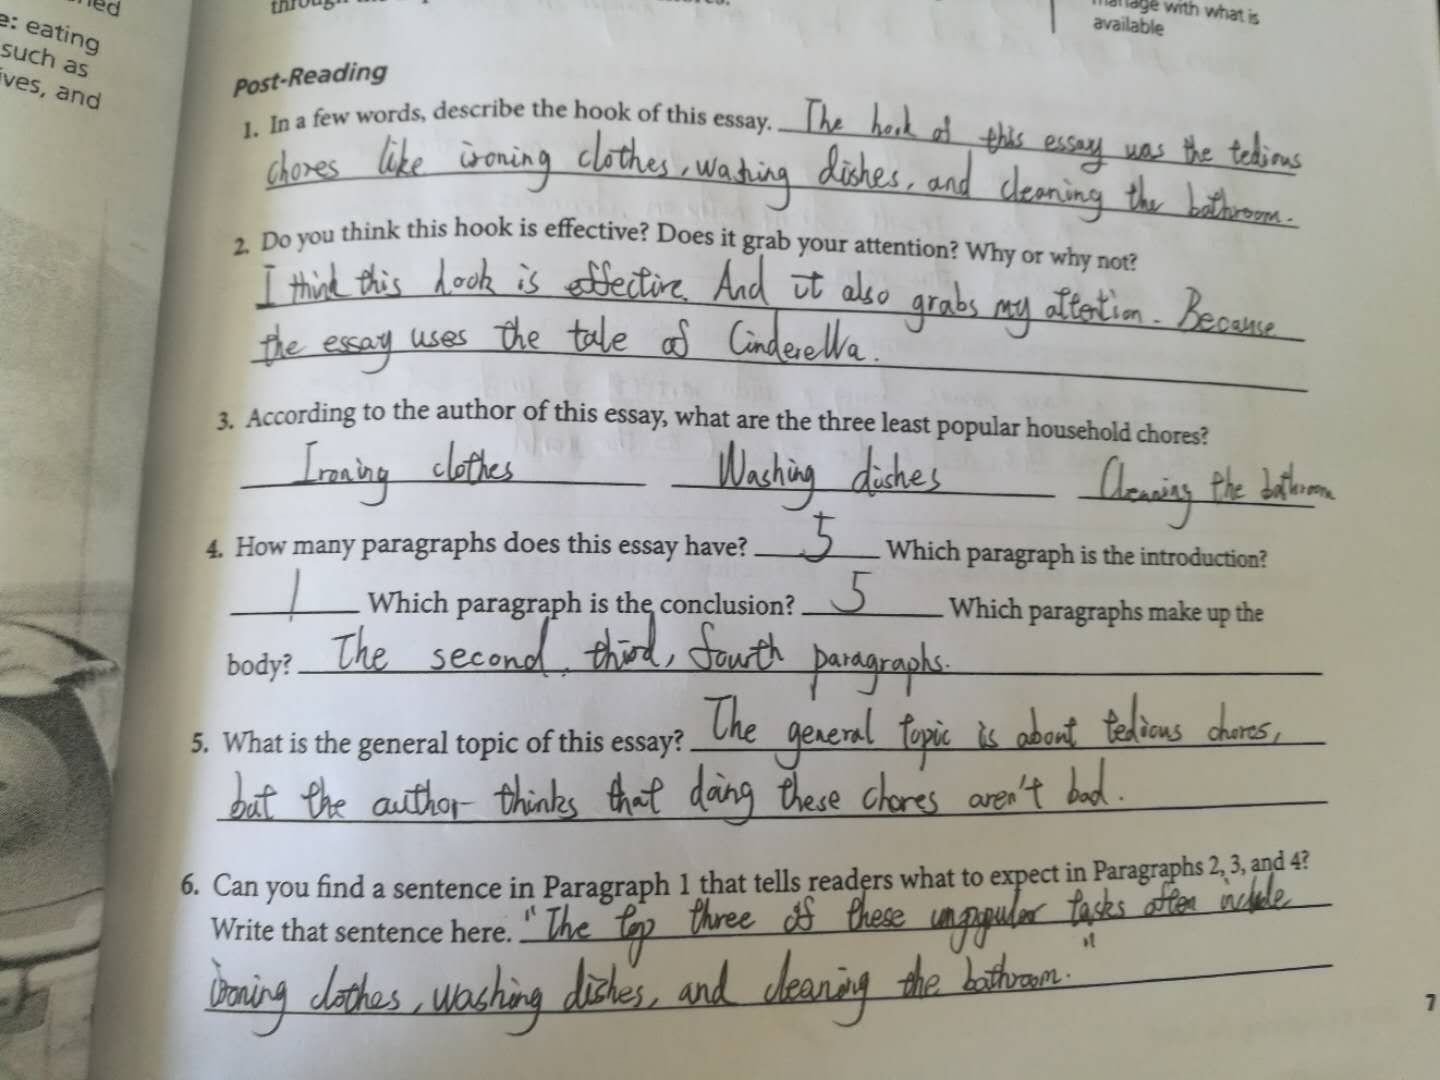 e: eating
such as
ives, and
manage with what is
available
Post-Reading
1. In a few words, describe the hook of this essay. The hook of this essay was the tedious
chores like ironing clothes, washing dishes, and cleaning the bathroom.
2. Do you think this hook is effective? Does it grab your attention? Why or why not?
I think this hook is effective. And it also grabs my attention. Because
the essay uses the tale of Cinderella.
3. According to the author of this essay, what are the three least popular household chores?
Ironing clothes Washing dishes Cleaning the bathroom
4. How many paragraphs does this essay have? 5 Which paragraph is the introduction?
1 Which paragraph is the conclusion? 5 Which paragraphs make up the
body? The second, third, fourth paragraphs.
5. What is the general topic of this essay? The general topic is about tedious chores,
but the author thinks that doing these chores aren't bad.
6. Can you find a sentence in Paragraph 1 that tells readers what to expect in Paragraphs 2, 3, and 4?
Write that sentence here. "The top three of these unpopular tasks often include
ironing clothes, washing dishes, and cleaning the bathroom."
7